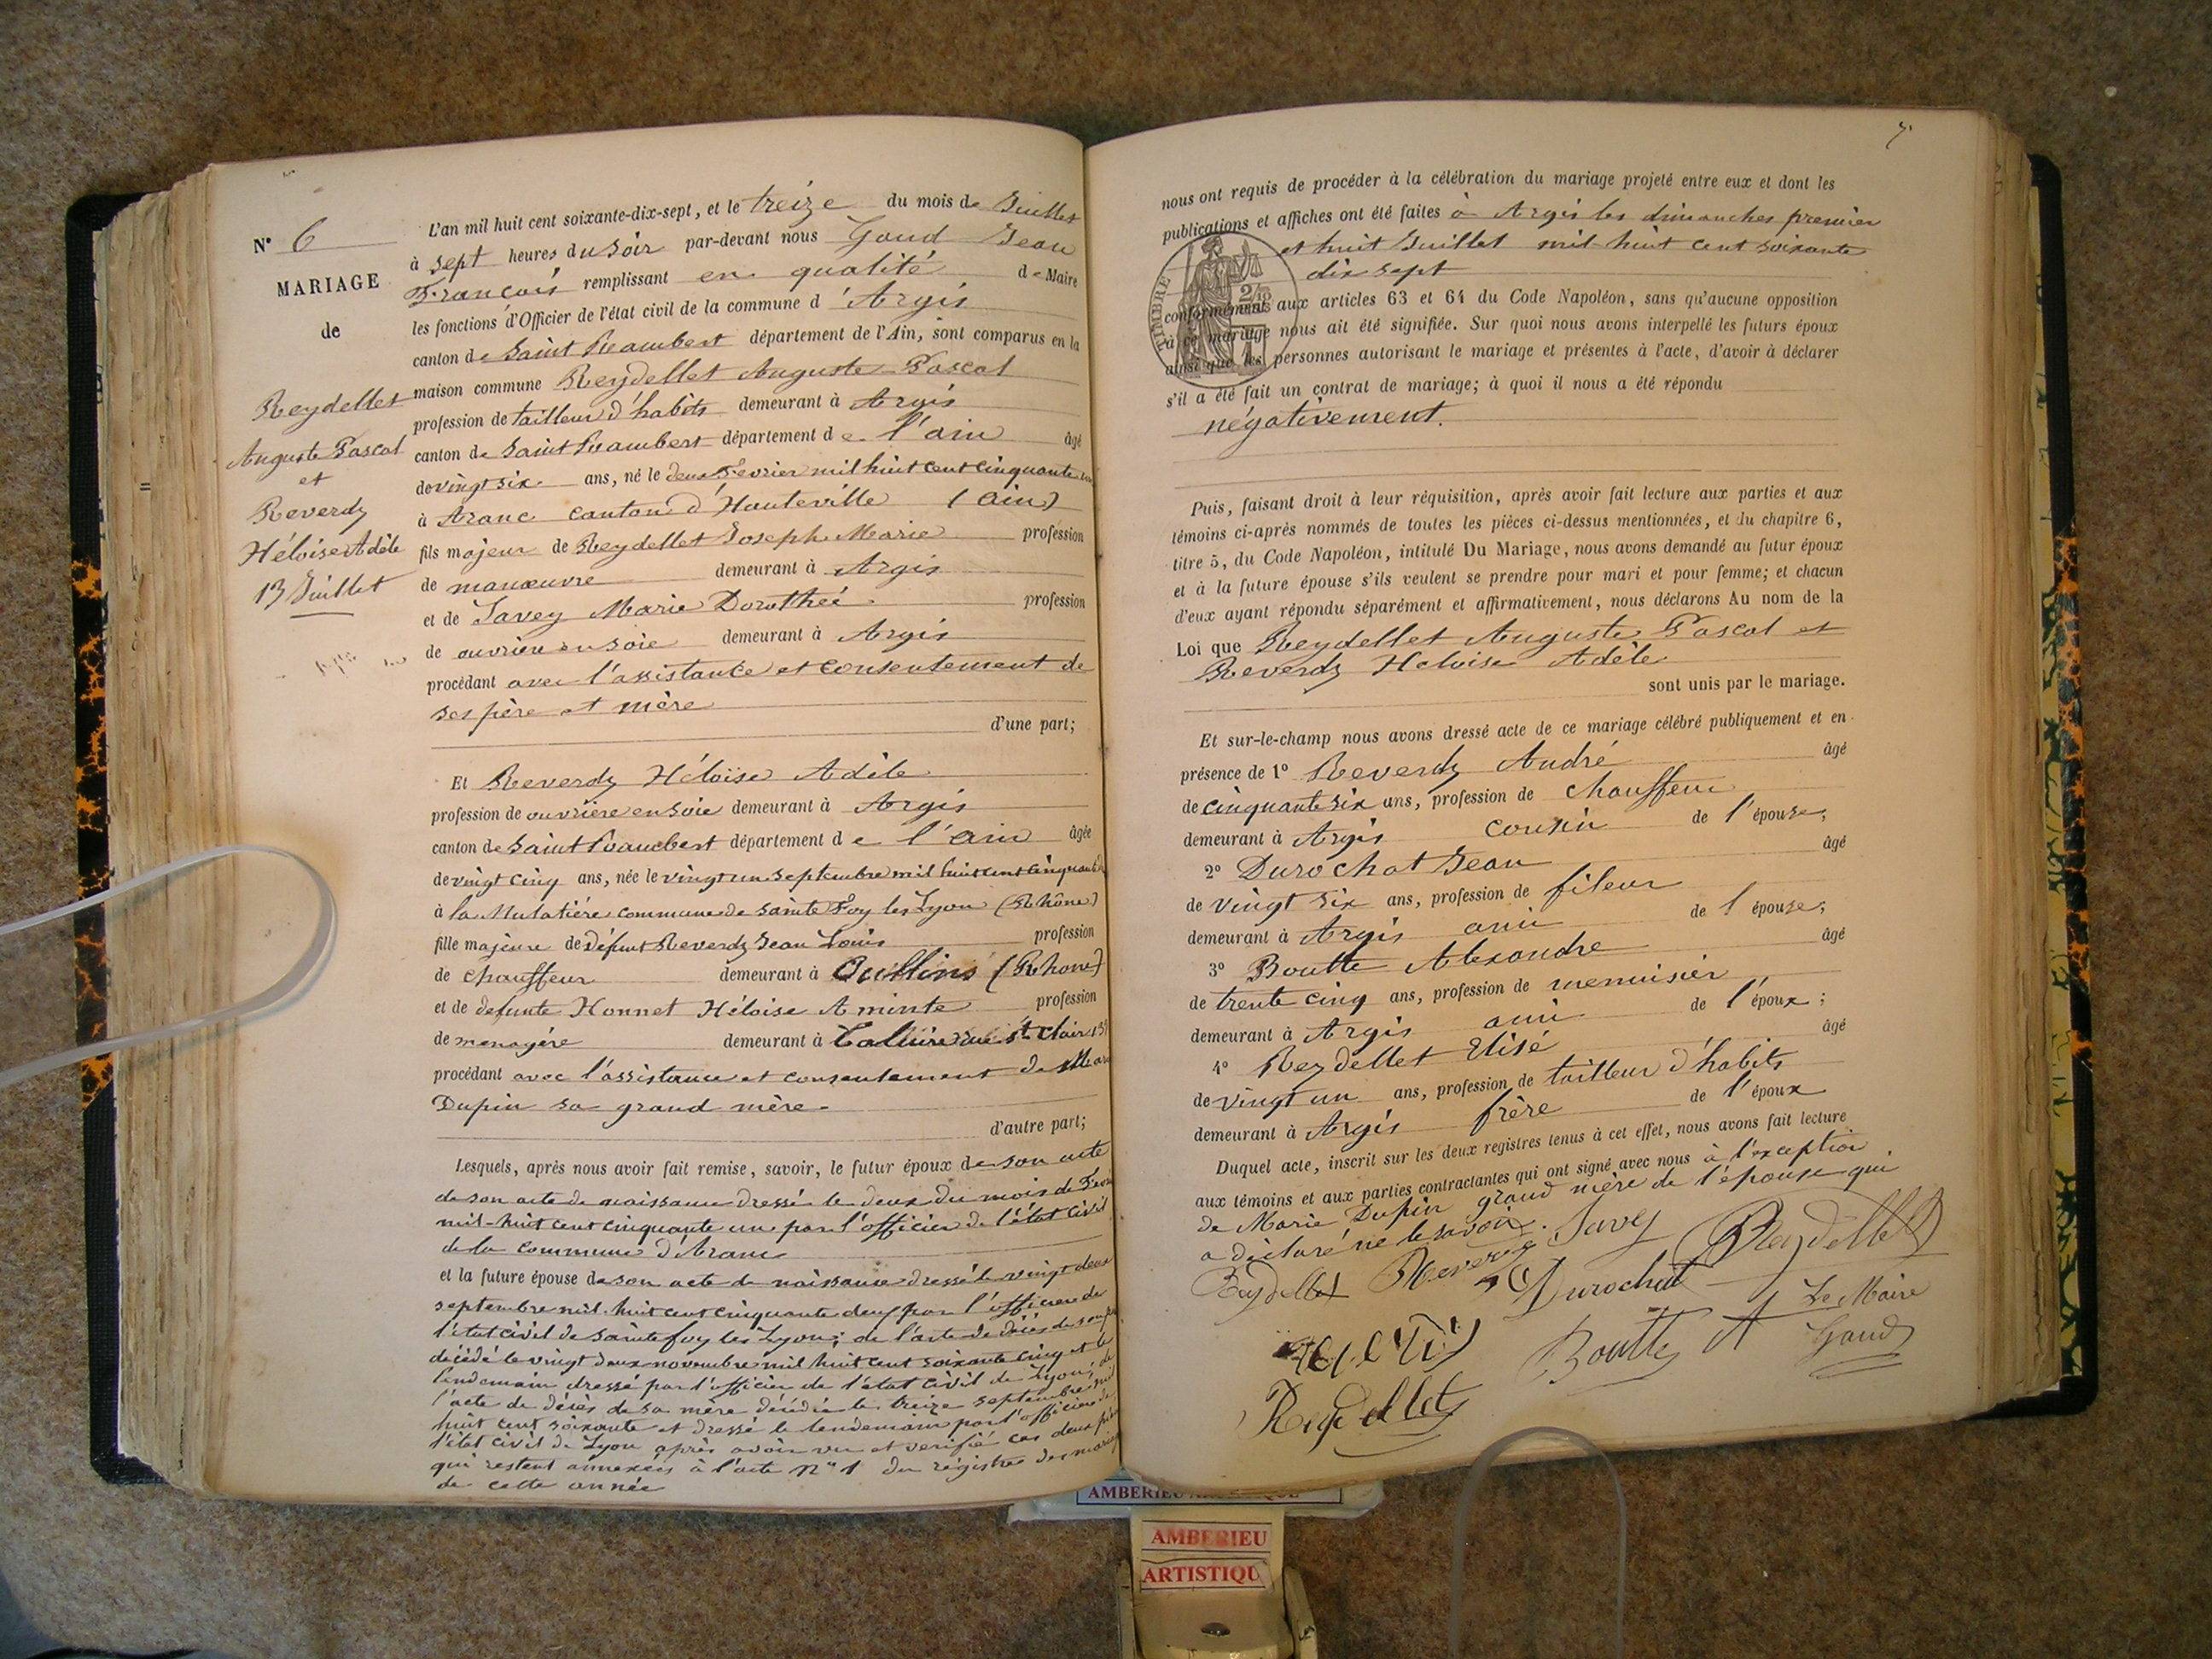 N° 6
MARIAGE
de
Reydellet
Auguste Pascal
et
Reverdy
Héloise Adèle
13 Juillet
L'an mil huit cent soixante-dix-sept, et le treize du mois de Juillet
à sept heures du soir par-devant nous Gaud Jean
François remplissant en qualité de Maire
les fonctions d'Officier de l'état civil de la commune d'Argis
canton de Saint Rambert département de l'Ain, sont comparus en la
maison commune Reydellet Auguste Pascal
profession de tailleur d'habits demeurant à Argis
canton de Saint Rambert département de l'ain âgé
de vingt six ans, né le deux Fevrier mil huit cent cinquante un
à Aranc canton d'Hauteville (Ain)
fils majeur de Reydellet Joseph Marie profession
de manœuvre demeurant à Argis
et de Savey Marie Dorothée profession
de ouvrière en soie demeurant à Argis
procédant avec l'assistance et consentement de
ses père et mère
d'une part;
Et Reverdy Héloïse Adèle
profession de ouvrière en soie demeurant à Argis
canton de Saint Rambert département de l'ain âgée
de vingt cinq ans, née le vingt un septembre mil huit cent cinquante
à la Mulatière commune de Sainte Foy les Lyon (Rhône)
fille majeure de défunt Reverdy Jean Louis profession
de chauffeur demeurant à Oullins (Rhone)
et de defunte Honnet Héloise Aminte profession
de menagère demeurant à Caluire rue St Clair
procédant avec l'assistance et consentement de Marie
Dupin sa grand mère.
d'autre part;
Lesquels, après nous avoir fait remise, savoir, le futur époux de son acte
de son acte de naissance dressé le deux du mois de
mil-huit cent cinquante un par l'officier de l'état civil
de la commune d'Aranc
et la future épouse de son acte de naissance dressé le vingt deux
septembre mil-huit cent cinquante deux par l'officier de
l'état civil de Sainte foy les Lyon; de l'acte de décès de son
décédé le vingt deux novembre mil huit cent soixante cinq et le
lendemain dressé par l'officier de l'état civil de Lyon; de
l'acte de décès de sa mère décédée le treize septembre mil
huit cent soixante et dressé le lendemain par l'officier de
l'état civil de Lyon après avoir vu et verifié ces deux
qui restent annexées à l'acte n° 1 du régistre des mariages
de cette année
7
nous ont requis de procéder à la célébration du mariage projeté entre eux et dont les
publications et affiches ont été faites à Argis les dimanches premier
et huit Juillet mil huit cent soixante
dix sept
TIMBRE
2/10
conformément aux articles 63 et 64 du Code Napoléon, sans qu'aucune opposition
à ce mariage nous ait été signifiée. Sur quoi nous avons interpellé les futurs époux
ainsi que les personnes autorisant le mariage et présentes à l'acte, d'avoir à déclarer
s'il a été fait un contrat de mariage; à quoi il nous a été répondu
négativement.
Puis, faisant droit à leur réquisition, après avoir fait lecture aux parties et aux
témoins ci-après nommés de toutes les pièces ci-dessus mentionnées, et du chapitre 6,
titre 5, du Code Napoléon, intitulé Du Mariage, nous avons demandé au futur époux
et à la future épouse s'ils veulent se prendre pour mari et pour femme; et chacun
d'eux ayant répondu séparément et affirmativement, nous déclarons Au nom de la
Loi que Reydellet Auguste Pascal et
Reverdy Heloise Adèle
sont unis par le mariage.
Et sur-le-champ nous avons dressé acte de ce mariage célébré publiquement et en
présence de 1° Reverdy André âgé
de cinquante six ans, profession de chauffeur
demeurant à Argis cousin de l'épouse;
2° Durochat Jean âgé
de vingt six ans, profession de fileur
demeurant à Argis ami de l épouse;
3° Boutte Alexandre âgé
de trente cinq ans, profession de menuisier
demeurant à Argis ami de l'époux;
4° Reydellet Elisé âgé
de vingt un ans, profession de tailleur d'habits
demeurant à Argis frère de l'époux
Duquel acte, inscrit sur les deux registres tenus à cet effet, nous avons fait lecture
aux témoins et aux parties contractantes qui ont signé avec nous à l'exception
de Marie Dupin grand mère de l'épouse qui
a déclaré ne le savoir. Savey Reydellet
Reydellet Reverdy Durochat
Le Maire
Boutte A Gaud
Reydellet
AMBERIEU ARTISTIQUE
AMBERIEU
ARTISTIQU